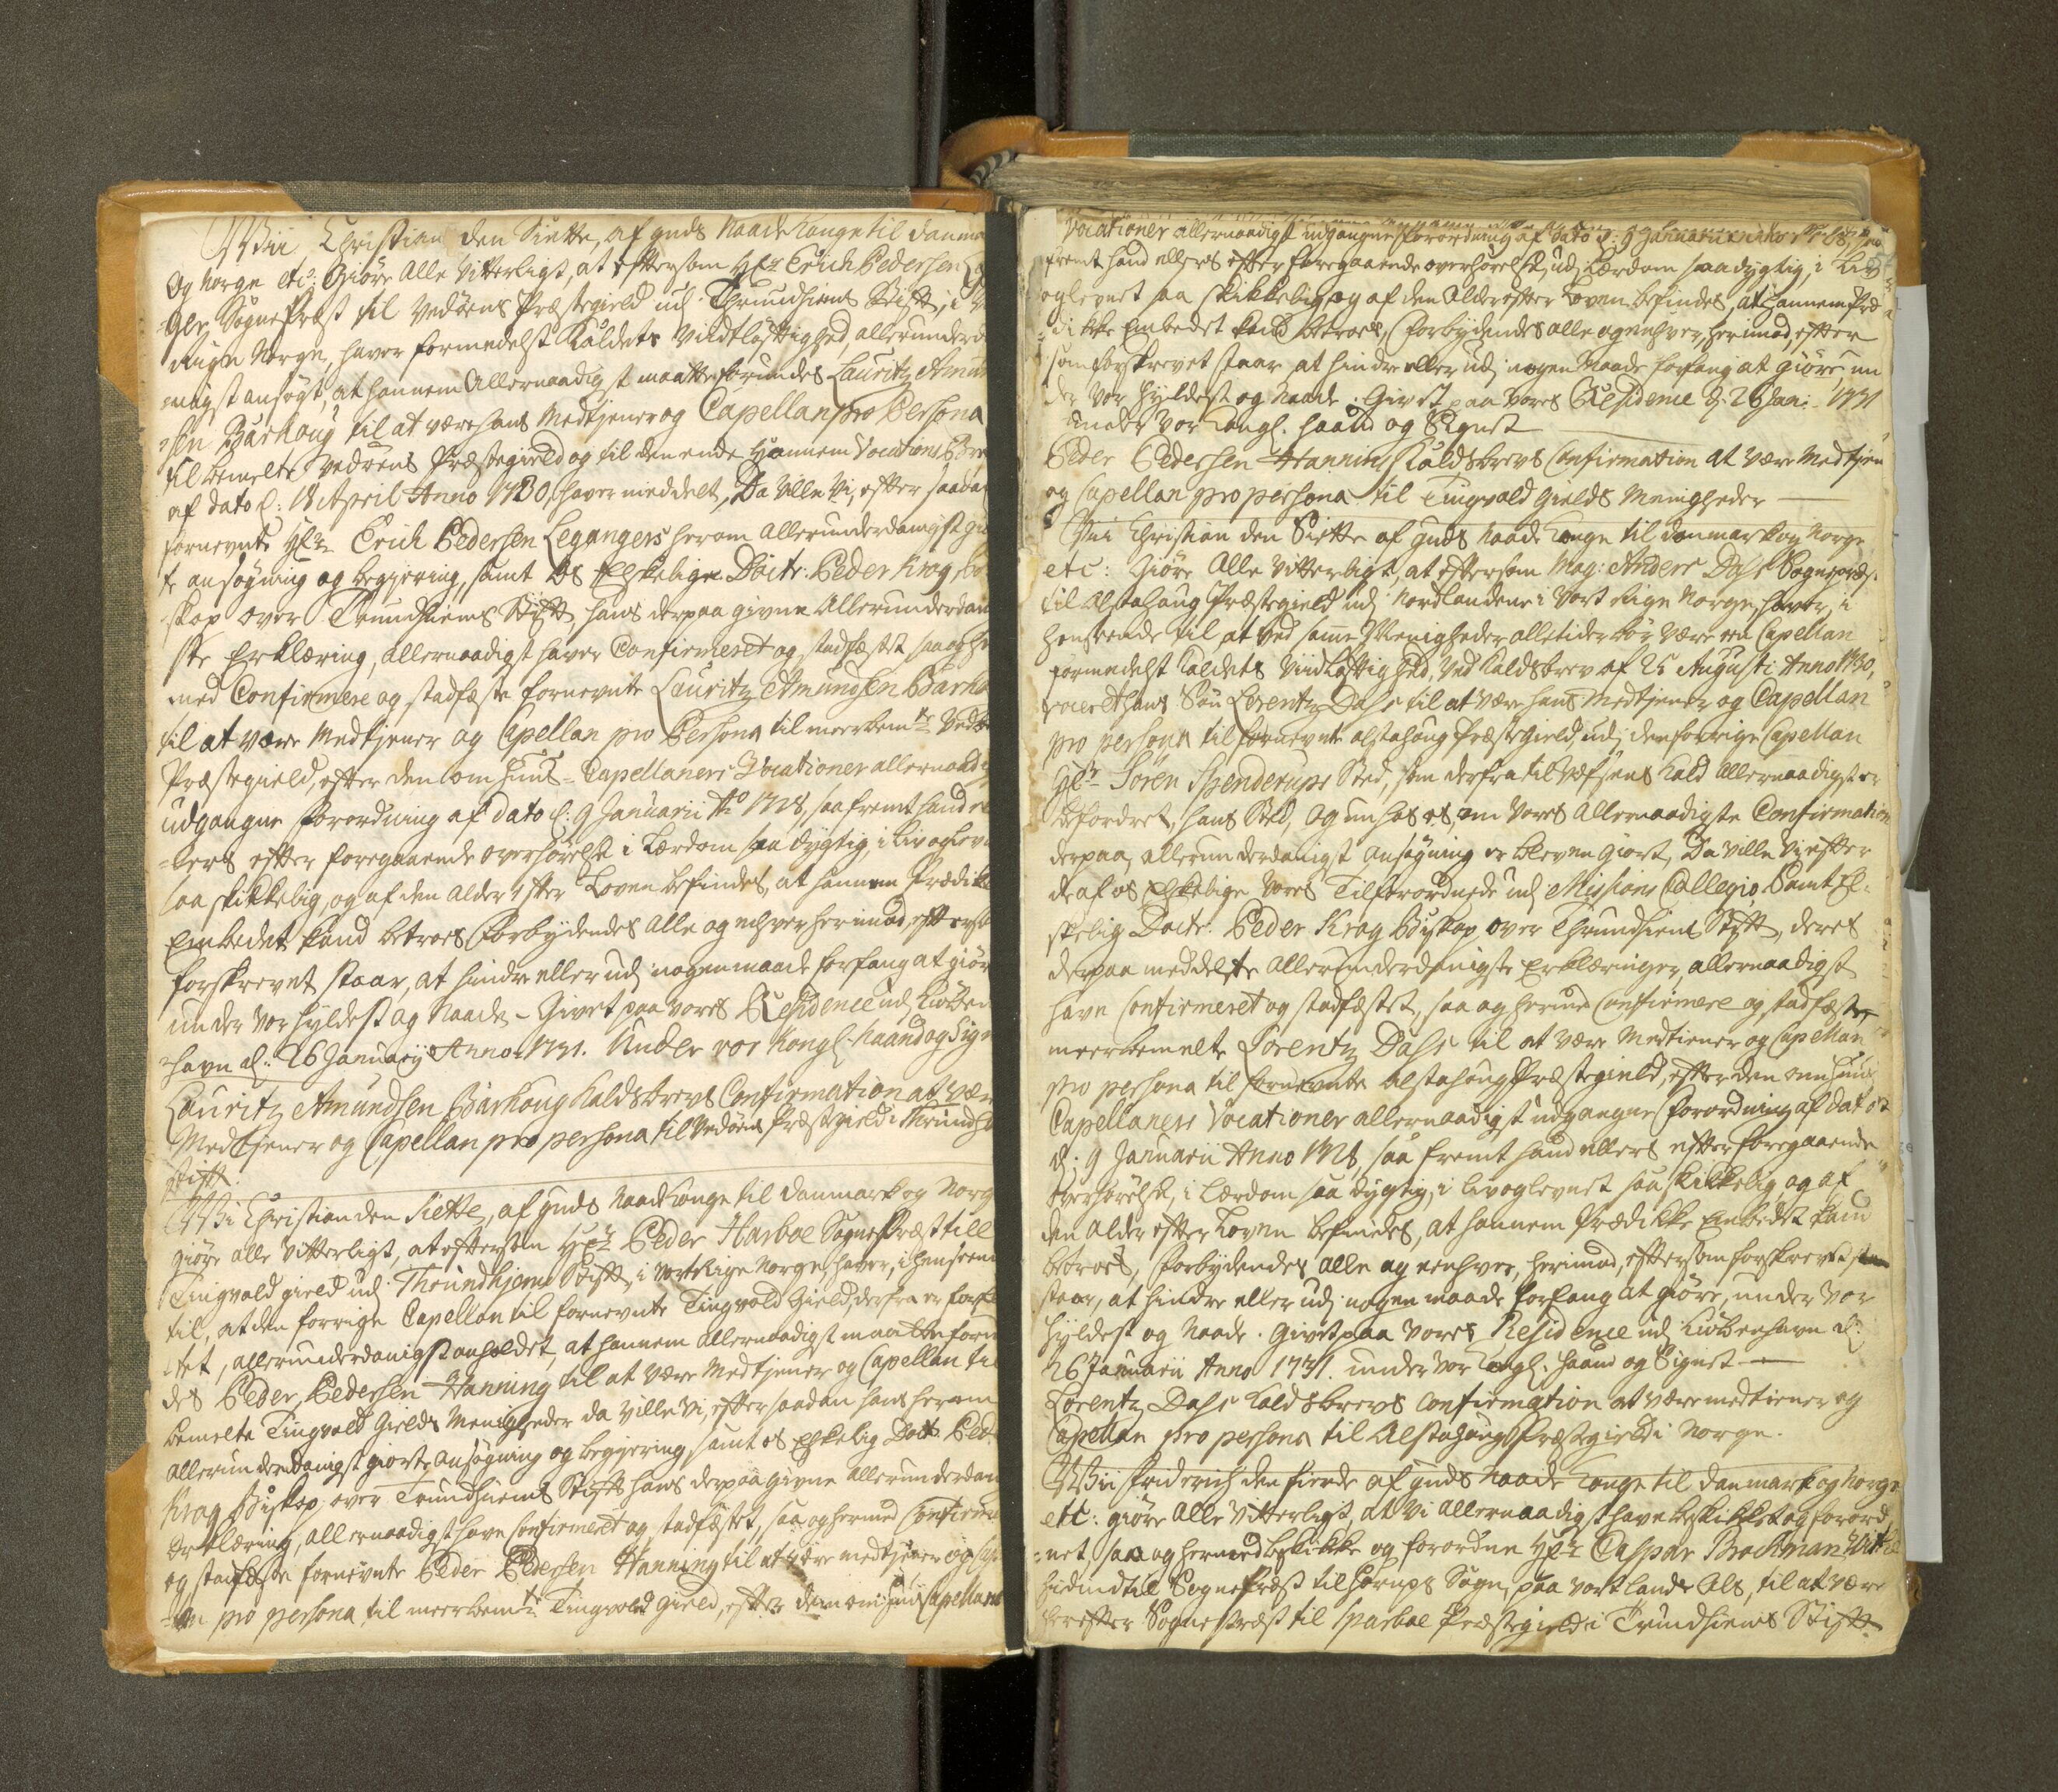 Wii Christian den Siette, af guds Naade Konge til Danma
Og Norge etc: Giøre Alle Vitterligt, at eftersom Hr: Erich Pedersen
ger, SognePræst til Vedøens Præstegield udj Thrundhiems Stift, i
Rige Norge, haver formedelst Kaldets Vidtløftighed, allerunderd
nigst ansøgt, at hannem Allernaadigst maatte forundes Lauritz Amun
sen Barhoug til at være hans Medtjener og Capellan pro Persona
til bemelte Vedøens Præstegield og til den ende Hannem Vocations Bre
af dato d: 18 April Anno 1730, haver meddelt, Da Ville Vi, efter saada
fornevnte Hr: Erich Pedersen Legangers herom Allerunderdanigst gio
te ansøgning og begiering, samt Os Elskelige Doctr: Peder Krog Bi
skop over Trundhiems Stift, hans derpaa givne Allerunderdan
ste Erklæring, allernaadigst haver Confirmeret og stadfæstet, saa og he
med Confirmere og stadfæste fornevnte Lauritz Amundsen Barho
til at være Medtjener og Capellan pro Persona til meerbemte Vedø
Præstegield, efter den om Huus-Capellaners Vocationer allernaadi
udgangne forordning af dato d: 9 Januarii Ao 1728, saa fremt hand el
lers efter foregaaende overhørelse i Lærdom saa dygtig, i Liv og Levn
saa skikkelig, og af den Alder efter Loven befindes, at hannem Prædik
Embedet kand betroes. Forbydendes Alle og enhver herimod, efterso
forskrevet staar, at hindre eller udj nogen maade forfang at giør
under Vor Hyldest og Naade. Givet paa Vores Residence udj Kiøben
havn d: 26 Januarij Anno 1731. Under vor Kongl: Haand og Sign
Lauritz Amundsen Barhoug Kaldsbrevs Confirmation at vær
Medtjener og Capellan pro persona til Vedøens Præstegield i Thrundh
Stift.
Wi Christian den Siette, af guds Naade Konge til Danmark og Norg
giøre alle Vitterligt, at eftersom Hr: Peder Harboe SognePræst till
Tingvold gield udj Thrundhjems Stift, i Vort Rige Norge, haver, i henseen
til, at den forrige Capellan til fornevnte Tingvold Gield, derfra er forfl
tet, allerunderdanigst anholdet, at hannem allernaadigst maatte forun
des Peder Pedersen Hanning til at være Medtjener og Capellan til
bemelte Tingvold Gields Menigheder da Ville Vi, efter saadan hans herom
Allerunderdanigst giorte Ansøgning og begiering, samt os Elskelig Doctr: Ped
Krog Biskop over Trundhiems Stift hans derpaa givne allerunderdan
Erklæring, allernaadigst have Confirmeret og stadfæstet, saa og hermed Confirme
og stadfæste fornevnte Peder Pedersen Hanning til at være medtjener og Cap
an pro persona til meerbemte Tingvold Gield, efter den om Huus Capellane
Vocationer allernaadigst udgangne Forordning af dato d: 9 Januarii Anno 1728, saa
fremt hand ellers efter foregaaende overhørelse, udj Lærdom saa dygtig, i Liv
og levnet saa skikkelig, og af den Alder efter Loven befindes, at hannem Præ
dikke Embedet kand betroes, Forbydendes alle og enhver, herimod, efter
som forskrevet staar at hindre eller udj nogen Maade forfang at giøre, un
der Vor Hyldest og Naade. Givet paa Vores Residence d: 26 Jan: 1731
under Vor Kongl: Haand og Signet
Peder Pedersen Hanning Kaldsbrevs Confirmation at være Medtjen
og Capellan pro persona til Tingvold Gields Menigheder
Wii Christian den Siette af guds Naade Konge til Danmark og Norge
etc: Giøre Alle Vitterligt, at eftersom Mag: Anders Dass Sognepræst
til Alstahaug Præstegield udj Nordlandene i Vort Rige Norge, haver, i
henseende til at ved samme Menigheder alletider bør være en Capellan
formedelst Kaldets Viidløftighed, Ved Kaldsbrev af 25 Augusti Anno 1730,
voceret hans Søn Lorentz Dass til at være hans Medtjener og Capellan
pro persona til fornevnte Alstahoug Præstegield, udj den forrige Capellan
Hr: Søren Spenderups Sted, som derfra til Vefsens Kald Allernaadigst er
befordret, hans Sted, og un hos os, om Vores Allernaadigste Confirmation
derpaa, allerunderdanigst ansøgning er bleven giort, Da Ville Vi efter
de af os Elskelige Vores Tilforordnede udj Missions Collegio, samt El-
skelig Doctr: Peder Krog Biskop over Thrundhiems Stift, deres
derpaa meddelte Allerunderdanigste Erklæringer, allernaadigst
have Confirmeret og stadfæstet, saa og hermed Confirmere og stadfæste
meerbemelte Lorentz Dass til at være Medtiener og Capellan
pro persona til fornevnte Alstahoug Præstegield, efter den om Huus
Capellaners Vocationer allernaadigst udgangne Forordning af dato
d: 9 Januarii Anno 1728, saa fremt hand ellers efter foregaaende
Overhørelse, i Lærdom saa dygtig, i liv og levnet saa skikkelig og af
den Alder efter Loven befindes, at hannem Prædikke Embedet kand
betroes, Forbydendes Alle og eenhver, herimod, eftersom forskrevet
staar, at hindre eller udj nogen maade forfang at giøre, under Vor
Hyldest og Naade. Givet paa Vores Residence udj Kiøbenhavn d:
26 Januarii Anno 1731. under Vor Kongl: Haand og Signet
Lorentz Dass Kaldsbrevs Confirmation at være medtiener og
Capellan pro persona til Alstahougs Præstegield i Norge.
Wii Friderich den fierde af guds Naade Konge til Danmark og Norge
etc: giøre Alle Vitterligt, at Vi allernaadigst have beskikket og forord
net, saa og hermed beskikke og forordne Hr: Caspar Brochman
hidindtil Sognepræst til Hørups Sogn, paa vort Land Als, til at være
herefter Sognepræst til Sparboe Præstegield i Trundhiems Stift